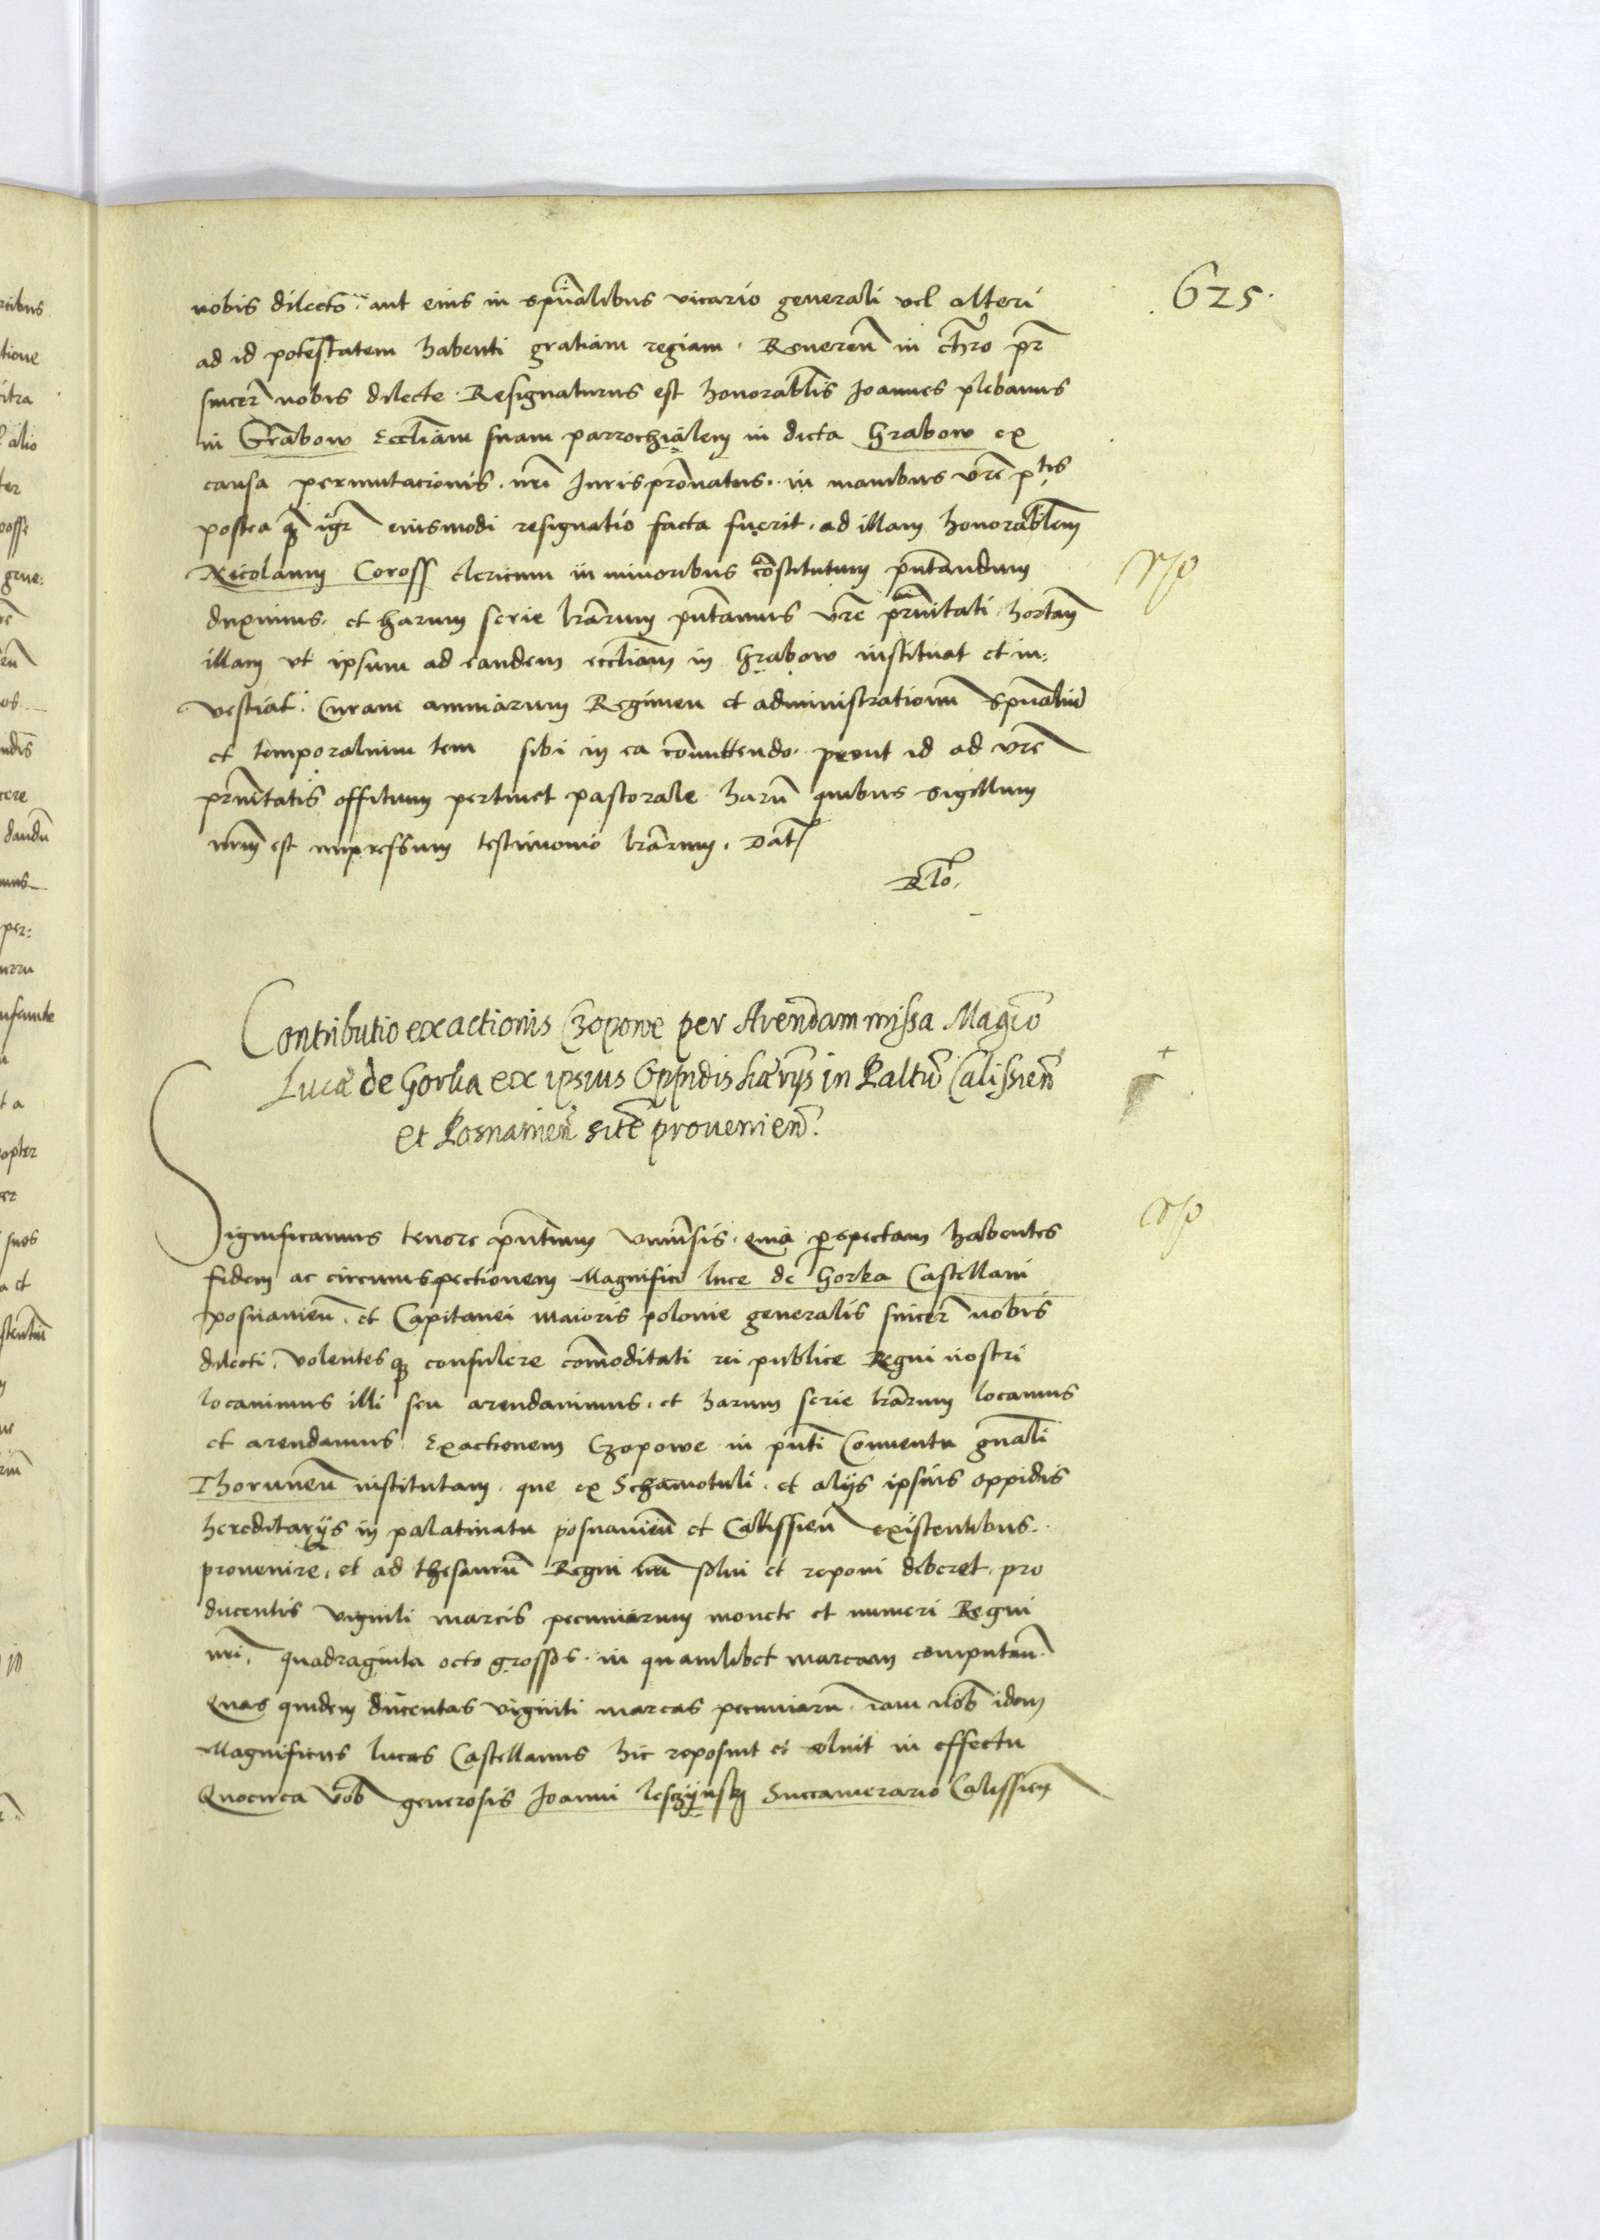 625.
nobis dilecto aut eius in spũalibus vicario generali vel alteri
ad id potestatem habenti gratiam regiam. Reuereñ in chro pr̃
sincer̃ nobis dilecte. Resignaturus est honorabilis Joannes plebanus
in Grabow Eccliam suam parrochialem in dicta Grabow ex
causa permutacionis nr̃i Jurispronatus. in manibus vr̃e p.tis
postea q̃ igr̃ eiusmodi resignatio facta fuerit. ad illam honorablem
Nicolaum Coross clericum in minoribus constitutum pñtandum
duximus. et harum serie lrarum pñtamus vr̃e prnitati hortam̃
illam vt ipsum ad eandem eccliam in Grabow instituat et in:
vestiat. Curam animarum Regimen et administrationem spũalium
et temporalium tem sibi in ea comittendo. prout id ad vr̃e
prnitatis offitium pertinet pastorale. harũ quibus sigillum
nr̃m est impressum testimonio lrarum. Dat
Rlo.
Contributio exactionis Czopowe per Arendam missa Magco
Lucae de Gorka ex ipsius Oppidis haerijs in Paltũ Calissieñ
Et Posnanieñ sitẽ prouenieñ.
Significamus tenore pñtium Vniũsis. quia perspectam habentes
fidem ac circumspectionem Magnifici luce de Gorka Castellani
posnanieñ. et Capitanei maioris polonie generalis sincer̃ nobis
dilecti. Volentesq̃ consulere comoditati rei publice Regni nostri
locauimus illi seu arendauimus. et harum serie lrarum locamus
et arendamus Exactionem Czopowe in pñti Conuentu gnali
Thoruneñ institutam. que ex Schamotuli. et alijs ipsius oppidis
hereditarijs in palatinatu posnanieñ et Calissieñ existentibus.
prouenire. et ad thesaurũ Regni nr̃i solui et reponi deberet. pro
ducentis viginti marcis pecuniarum monete et numeri Regni
nr̃i. quadraginta octo grossos. in quamlibet marcam computañ.
Quas quidem ducentas viginti marcas pecuniarũ iam nob idem
Magnificus lucas Castellanus hic reposuit et soluit in effectu
Quocirca vob generosis Joanni lesczijnskj Succamerario Calissieñ